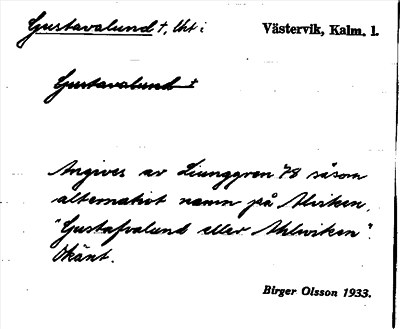 Gustavalund †, Uht i Västervik, Kalm. l.
Gustavalund †
Angives av Ljunggren 78 såsom
alternativt namn på Alviken.
"Gustafvalund eller Ahlwiken".
Okänt.
Birger Olsson 1933.